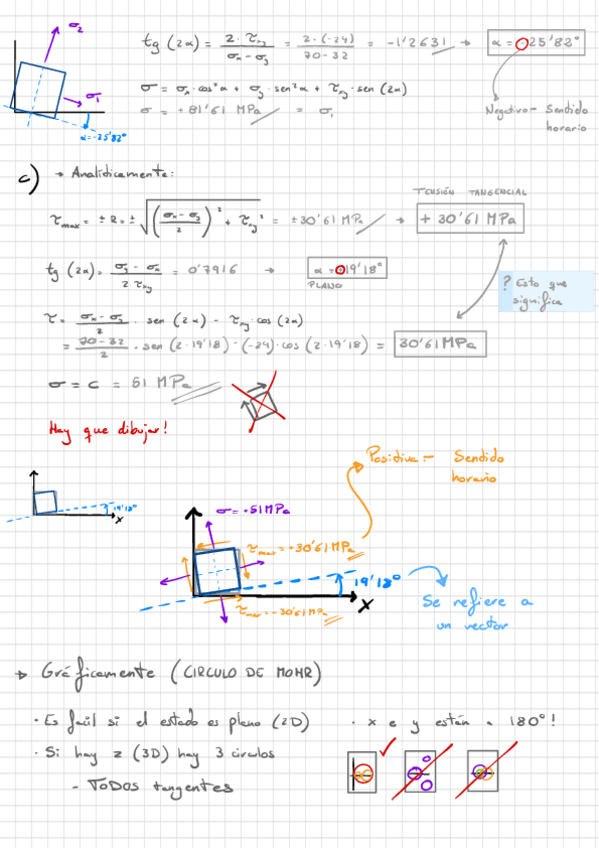 σ₂
σ₁
α=-25'82°
tg (2α) = 2·τxy / σx - σy = 2·(-24) / 70-32 = -1'2631 → α = -25'82°
σ = σx·cos²α + σy·sen²α + τxy·sen (2α)
σ = +81'61 MPa = σ₁
Negativo - Sentido
horario
c) → Analíticamente:
TENSIÓN TANGENCIAL
τmax = ± R = ± √((σx - σy / 2)² + τxy²) = ±30'61 MPa → + 30'61 MPa
tg (2α) = σy - σx / 2 τxy = 0'7916 → α = 19'18°
PLANO
? Esto que
significa
τ = σx - σy / 2 · sen (2α) - τxy·cos (2α)
= 70-32 / 2 · sen (2·19'18) - (-24)·cos (2·19'18) = 30'61 MPa
σ = c = 51 MPa
Hay que dibujar!
Positiva - Sentido
horario
19'18°
X
σ = +51 MPa
τmax = +30'61 MPa
19'18°
X
τmax = -30'61 MPa
Se refiere a
un vector
→ Gráficamente (CIRCULO DE MOHR)
· Es facil si el estado es plano (2D)
· x e y están a 180°!
· Si hay z (3D) hay 3 circulos
- TODOS tangentes